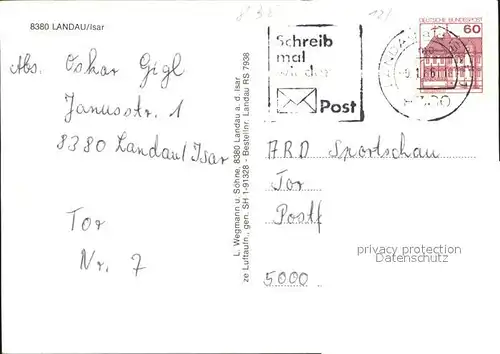 8380 LANDAU/Isar
Abs. Oskar Gigl
Janusstr. 1
8380 Landau/Isar
Tor
Nr. 7
L. Wegmann u. Söhne, 8380 Landau a. d. Isar
ze Luftaufn., gen. SH 1-91328 - Bestellnr. Landau RS 7938
Schreib
mal
wieder
Post
DEUTSCHE BUNDESPOST
60
ARD Sportschau
Tor
Postf
5000
privacy protection
Datenschutz